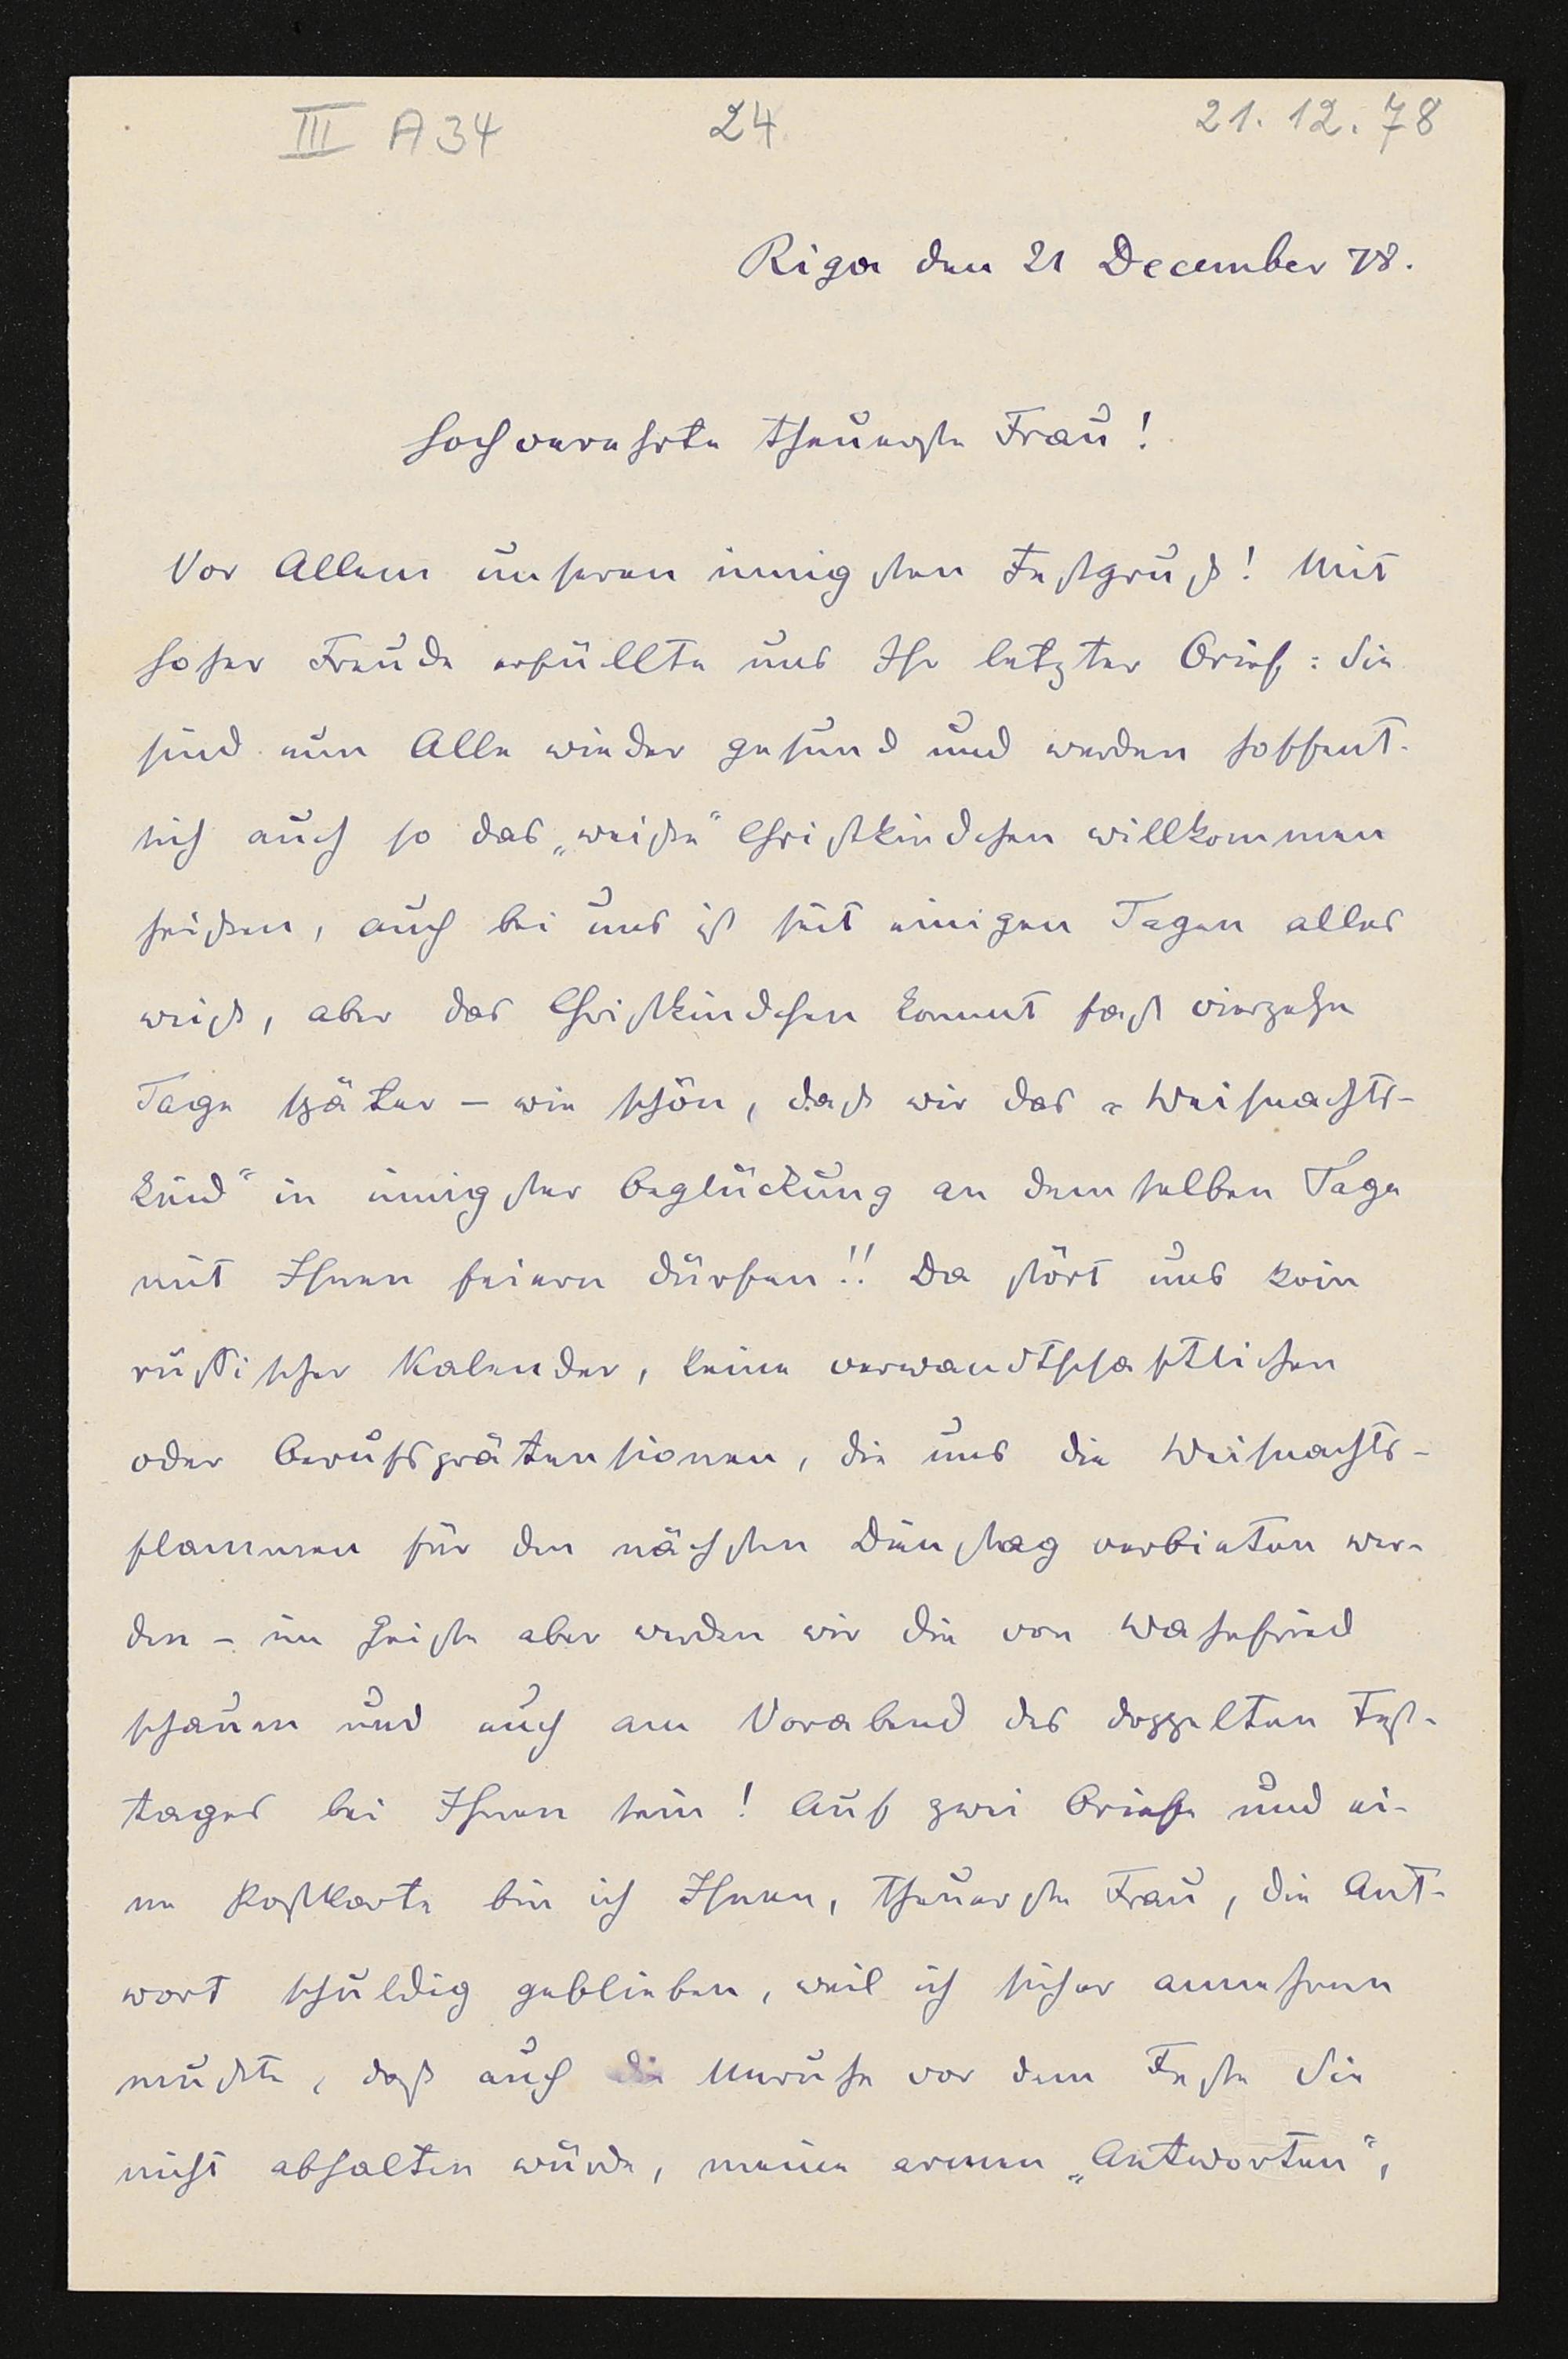 III A 34 24 21. 12. 78
Riga den 21 December 78.
Hochverehrte theuerste Frau!
Vor Allem unseren innigsten Festgruß! Mit
hoher Freude erfüllte uns Ihr letzter Brief: Sie
sind nun Alle wieder gesund und werden hoffent-
lich auch so das „weiße“ Christkindchen willkommen
heißen, auch bei uns ist seit einigen Tagen alles
weiß, aber das Christkindchen kommt fast vierzehn
Tage später – wie schön, daß wir das „Weihnachts-
kind“ in innigster Beglückung an demselben Tage
mit Ihnen feiern dürfen!! Da stört uns kein
russischer Kalender, keine verwandtschaftlichen
oder Berufsprätensionen, die uns die Weihnachts-
flammen für den nächsten Dienstag verbieten wer-
den – im Geiste aber werden wir die von Wahnfried
schauen und auch am Vorabend des doppelten Fest-
tages bei Ihnen sein! Auf zwei Briefe und ei-
ne Postkarte bin ich Ihnen, theuerste Frau, die Ant-
wort schuldig geblieben, weil ich sicher annehmen
mußte, daß auch die Unruhe vor dem Feste Sie
nicht abhalten würde, meinen armen „Antworten“,